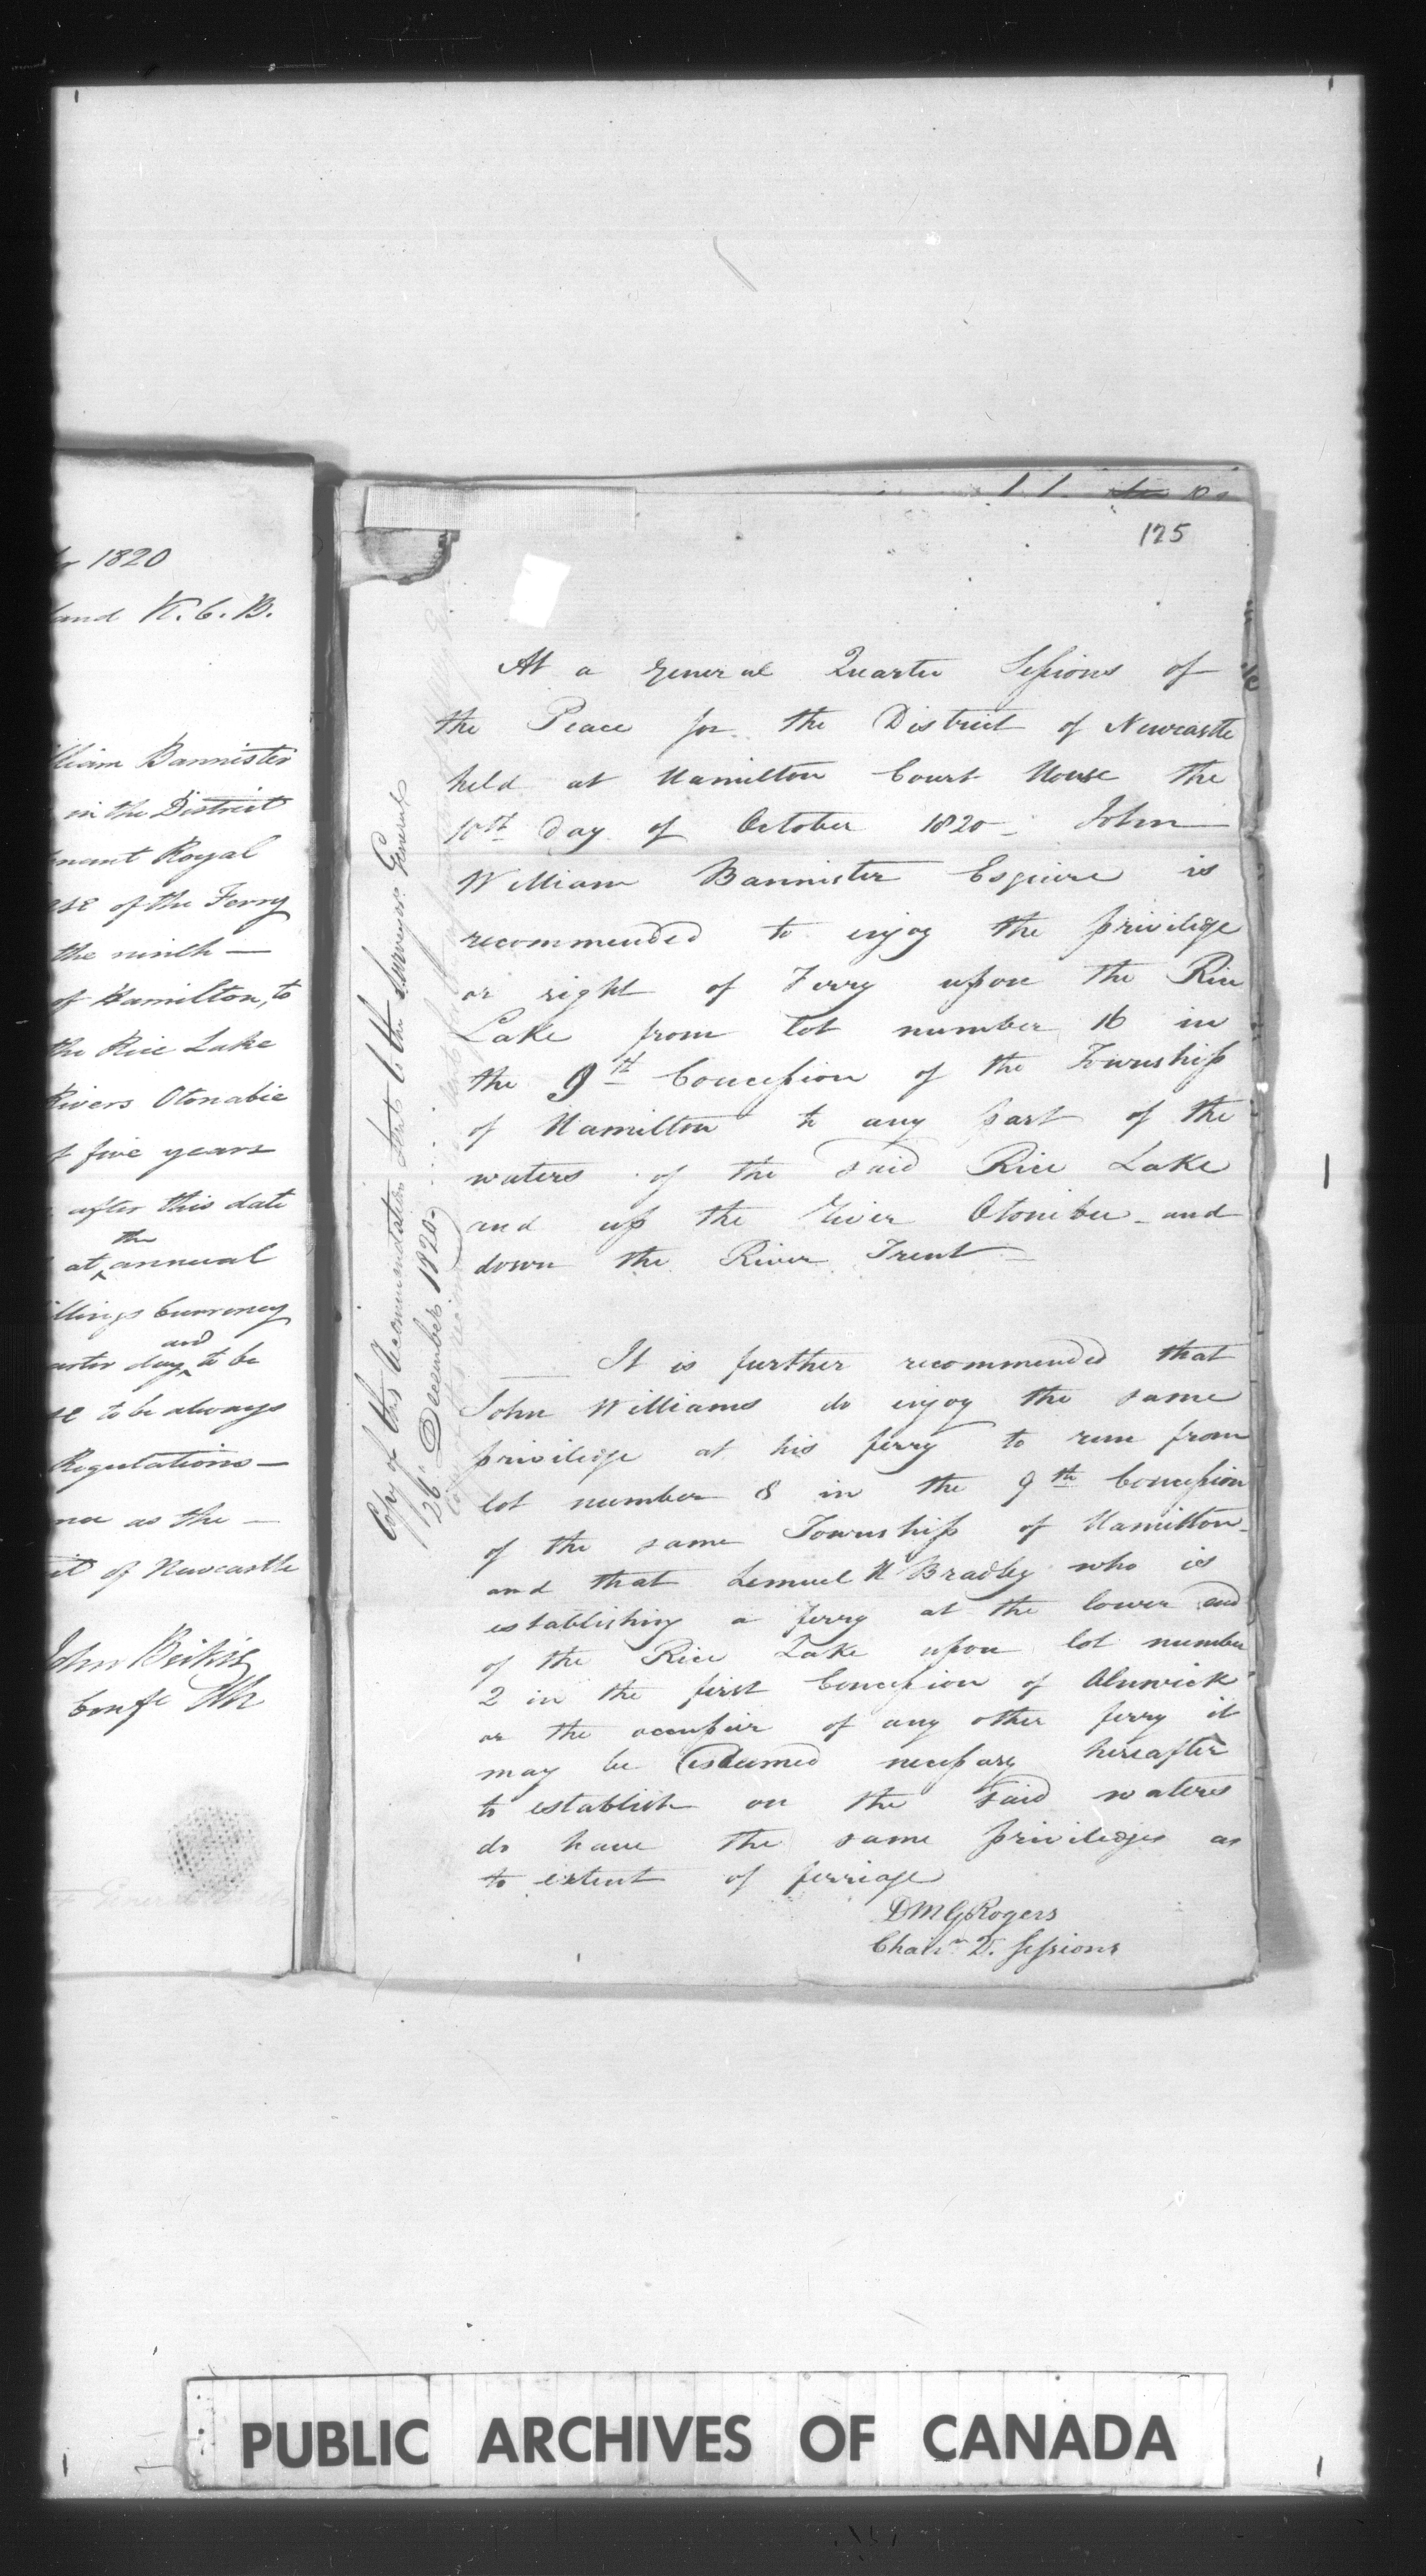 1820
and K. C. B.
lliam Bannister
in the District
nant Royal
se of the Ferry
the ninth —
of Hamilton, to
the Rice Lake
Rivers Otonabie
five years
after this date
at the annual
llings Currency
arter day and to be
se to be always
Regulations —
nce as the —
it of Newcastle
John Beikie
Conf. Clk
125
At a General Quarter Sessions of
the Peace for the District of Newcastle
held at Hamilton Court House the
10th day of October 1820 - John
William Bannister Esquire is
recommended to enjoy the privilege
or right of Ferry upon the Rice
Lake from lot number 16 in
the 9th Concession of the Township
of Hamilton to any part of the
waters of the said Rice Lake
and up the River Otonibee - and
down the River Trent —
It is further recommended that
John Williams do enjoy the same
privilege at his ferry to run from
lot number 8 in the 9th Concession
of the same Township of Hamilton -
and that Lemuel H Bradley who is
establishing a ferry at the lower end
of the Rice Lake upon lot number
2 in the first Concession of Alnwick
or the occupier of any other ferry it
may be esteemed necessary hereafter
to establish on the said waters
do have the same privileges as
to extent of ferriage
DMGRogers
Chairn. D. Sessions
Copy of this Recommendation sent to the Surveyor General
26. December 1820 -
PUBLIC ARCHIVES OF CANADA